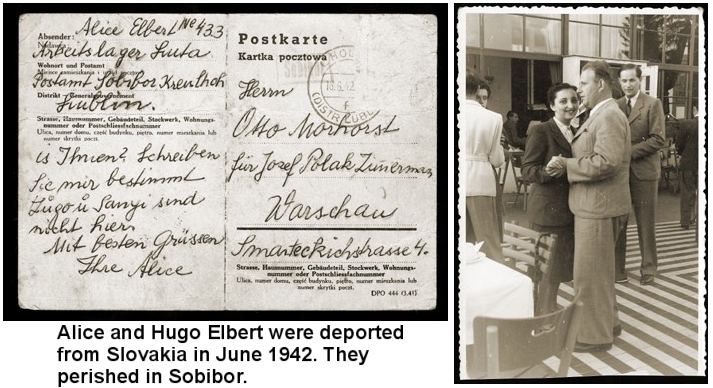 Absender:
Alice Elbert No 433
Nadawca:
Arbeitslager Luta
Wohnort und Postamt
Miejsce zamieszkania i urząd pocztowy
Postamt Sobibor Kreis
Distrikt Generalgouvernement
Lublin.
Strasse, Hausnummer, Gebäudeteil, Stockwerk, Wohnungs-
nummer oder Postschliessfachnummer
Ulica, numer domu, część budynku, piętro, numer mieszkania lub
numer skrytki poczt.
is Ihnen? Schreiben
Sie mir bestimmt
Sanyi sind
nicht hier.
Mit besten Grüssen
Ihre Alice
Postkarte
Kartka pocztowa
CHOLM
(DISTR. LUBL
Herrn
Otto Morhorst
für Josef Polak
Warschau
4.
Strasse, Hausnummer, Gebäudeteil, Stockwerk, Wohnungs-
nummer oder Postschliessfachnummer
Ulica, numer domu, część budynku, piętro, numer mieszkania lub
numer skrytki poczt.
DPO 444 (3.41)
Alice and Hugo Elbert were deported
from Slovakia in June 1942. They
perished in Sobibor.